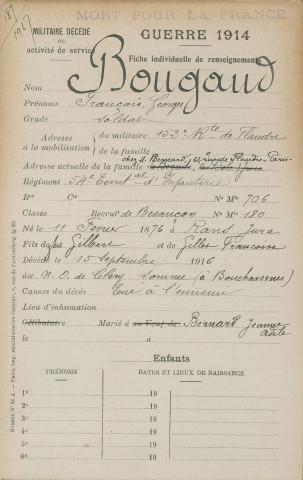 187
1967
MORT POUR LA FRANCE
MILITAIRE DÉCÉDÉ
ou
activité de service
GUERRE 1914
Fiche individuelle de renseignements
Nom Bougaud
Prénoms François, Georges
Grade Soldat
Adresse à la mobilisation
du militaire 152 Rte de Flandre
de la famille
chez M. Bernard, Flandre Paris
Adresse actuelle de la famille
Régiment 54e Territal d'Infanterie
Bon Cie No Mle 706
Classe Recrut de Besançon No Mle 180
Né le 11 Février 1876 à Rans, Jura
Fils de feu Gilbert et de Gilles Françoise
Décédé le 15 Septembre 1916
au N.O. de Cléry Somme (à Bouchavesnes)
Causes du décès Tué à l'ennemi
Lieu d'inhumation
Célibataire Marié à ou Veuf de Bernard Jeanne
le à
Enfants
PRÉNOMS DATES ET LIEUX DE NAISSANCE
1o 19
2o 19
3o 19
4o 19
5o 19
6o 19